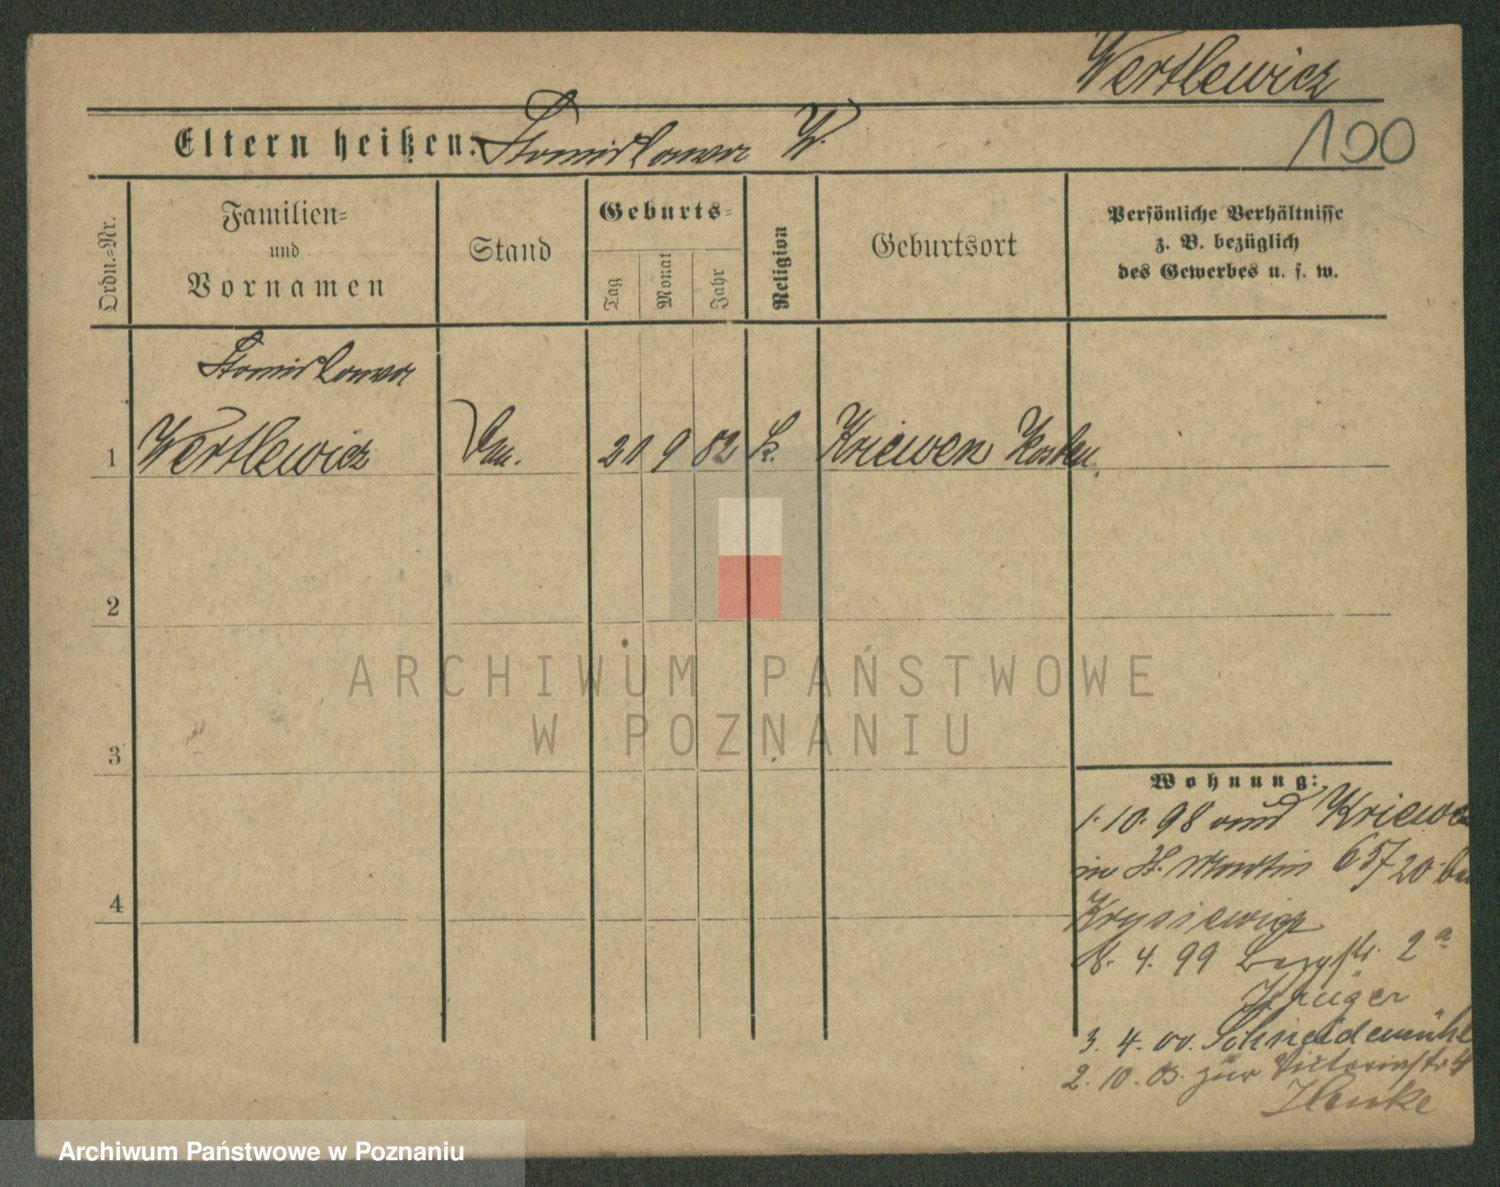 Wertlewicz
Eltern heißen: Stanislawa W.
100
Ordn.-Nr.
Familien-
und
Vornamen
Stand
Geburts-
Tag
Monat
Jahr
Religion
Geburtsort
Persönliche Verhältnisse
z. B. bezüglich
des Gewerbes u. s. w.
Stanislawa
1 Wertlewicz 9 82 k. Kriewen Kosten
2
ARCHIWUM PAŃSTWOWE
W POZNANIU
3
Wohnung:
1. 10. 98 Kriewen
in St. Martin 65/ 20 bei
4
Krysiewicz
8. 4. 99 Bergstr. 2a
3. 4. 00. Schneidemühl
2. 10. 03. zur Victoriastr.
Archiwum Państwowe w Poznaniu